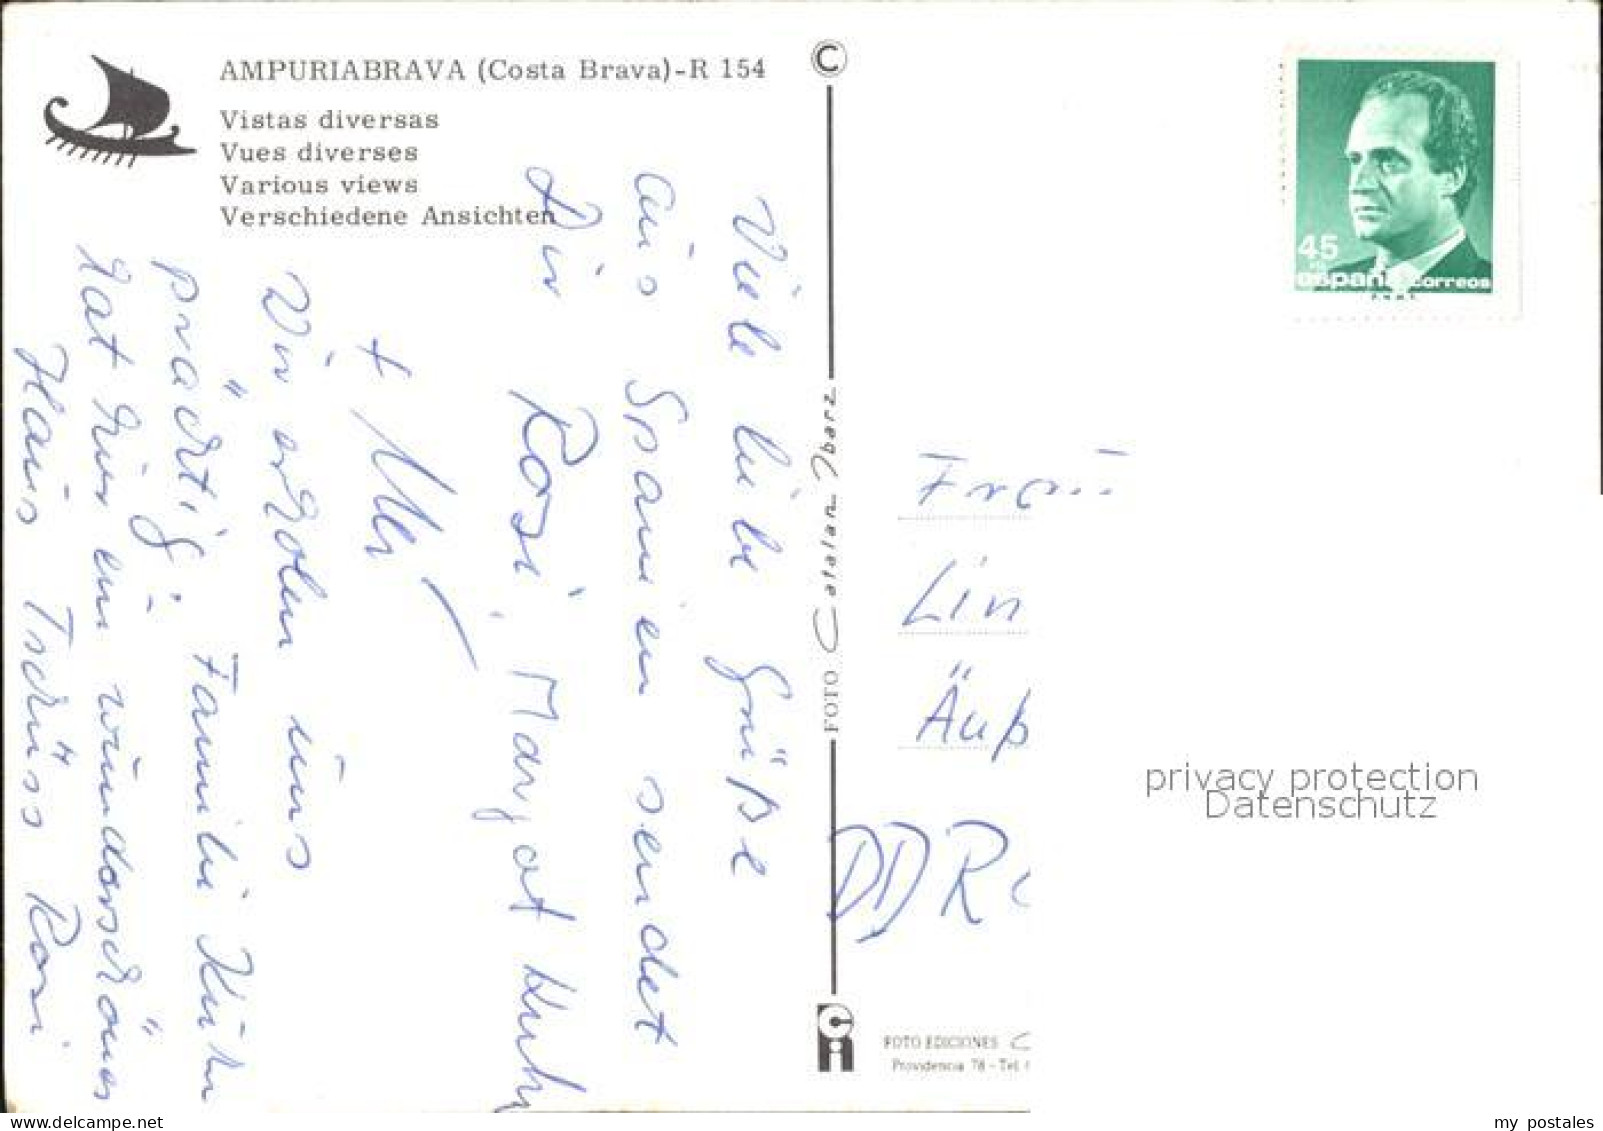 AMPURIABRAVA (Costa Brava)-R 154
Vistas diversas
Vues diverses
Various views
Verschiedene Ansichten
Viele liebe Grüße
aus Spanien sendet
Dir Rosi, Margot Kuhn
+ Uli
Wir erholen uns
prächtig. Familie Kühn
hat hier ein wunderschönes
Haus Tschüss Rosi
©
FOTO Catalan Ibarz
45
españa correos
F.N.M.T.
Frau
Lin
Äuß
DDR
privacy protection
Datenschutz
FOTO EDICIONES
Providencia 78 - Tel.
my postales